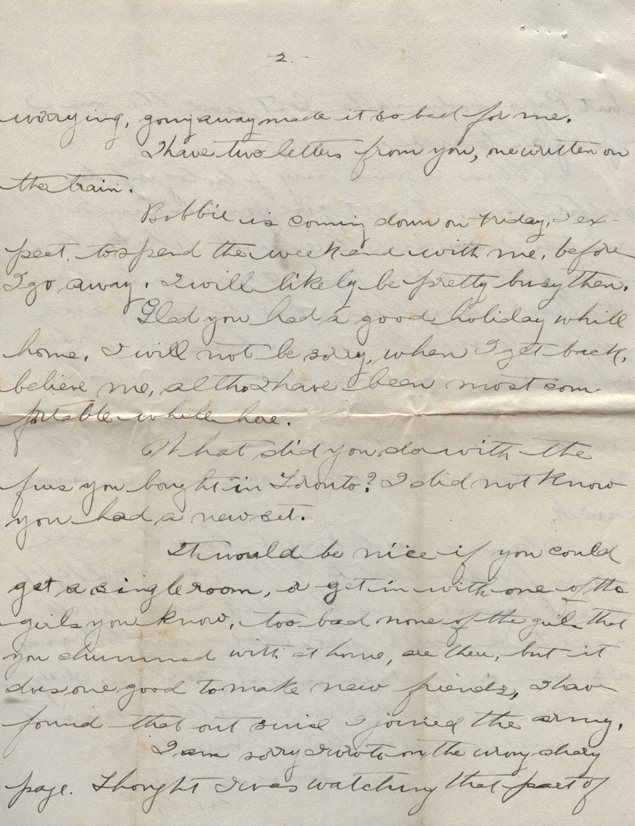 -2.-
worrying, going away made it so bad for me.
I have two letters from you, one written on
the train.
Bobbie is coming down on Friday, I ex-
pect, to spend the weekend with me, before
I go away. I will likely be pretty busy then.
Glad you had a good holiday while
home. I will not be sorry, when I get back,
believe me, altho I have been most com-
fortable while here.
What did you do with the
furs you bought in Toronto? I did not know
you had a new set.
It would be nice if you could
get a single room, or get in with one of the
girls you know, too bad none of the girls that
you chummed with at home, are there, but it
does one good to make new friends, I have
found that out since I joined the army.
I am sorry I wrote on the wrong diary
page. I thought I was watching that part of